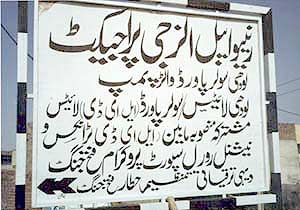 رینیو ایبل انرجی پراجیکٹ
لوجی سولر پاورڈ واٹر پمپ
لوجی لائیٹس سولر پاورڈ (ایل ای ڈی) لائیٹس
مشترکہ منصوبہ مابین (ایل ای ڈی)
نیشنل رورل سپورٹ پروگرام فتح جنگ
دیہی ترقیاتی تنظیم حطار فتح جنگ